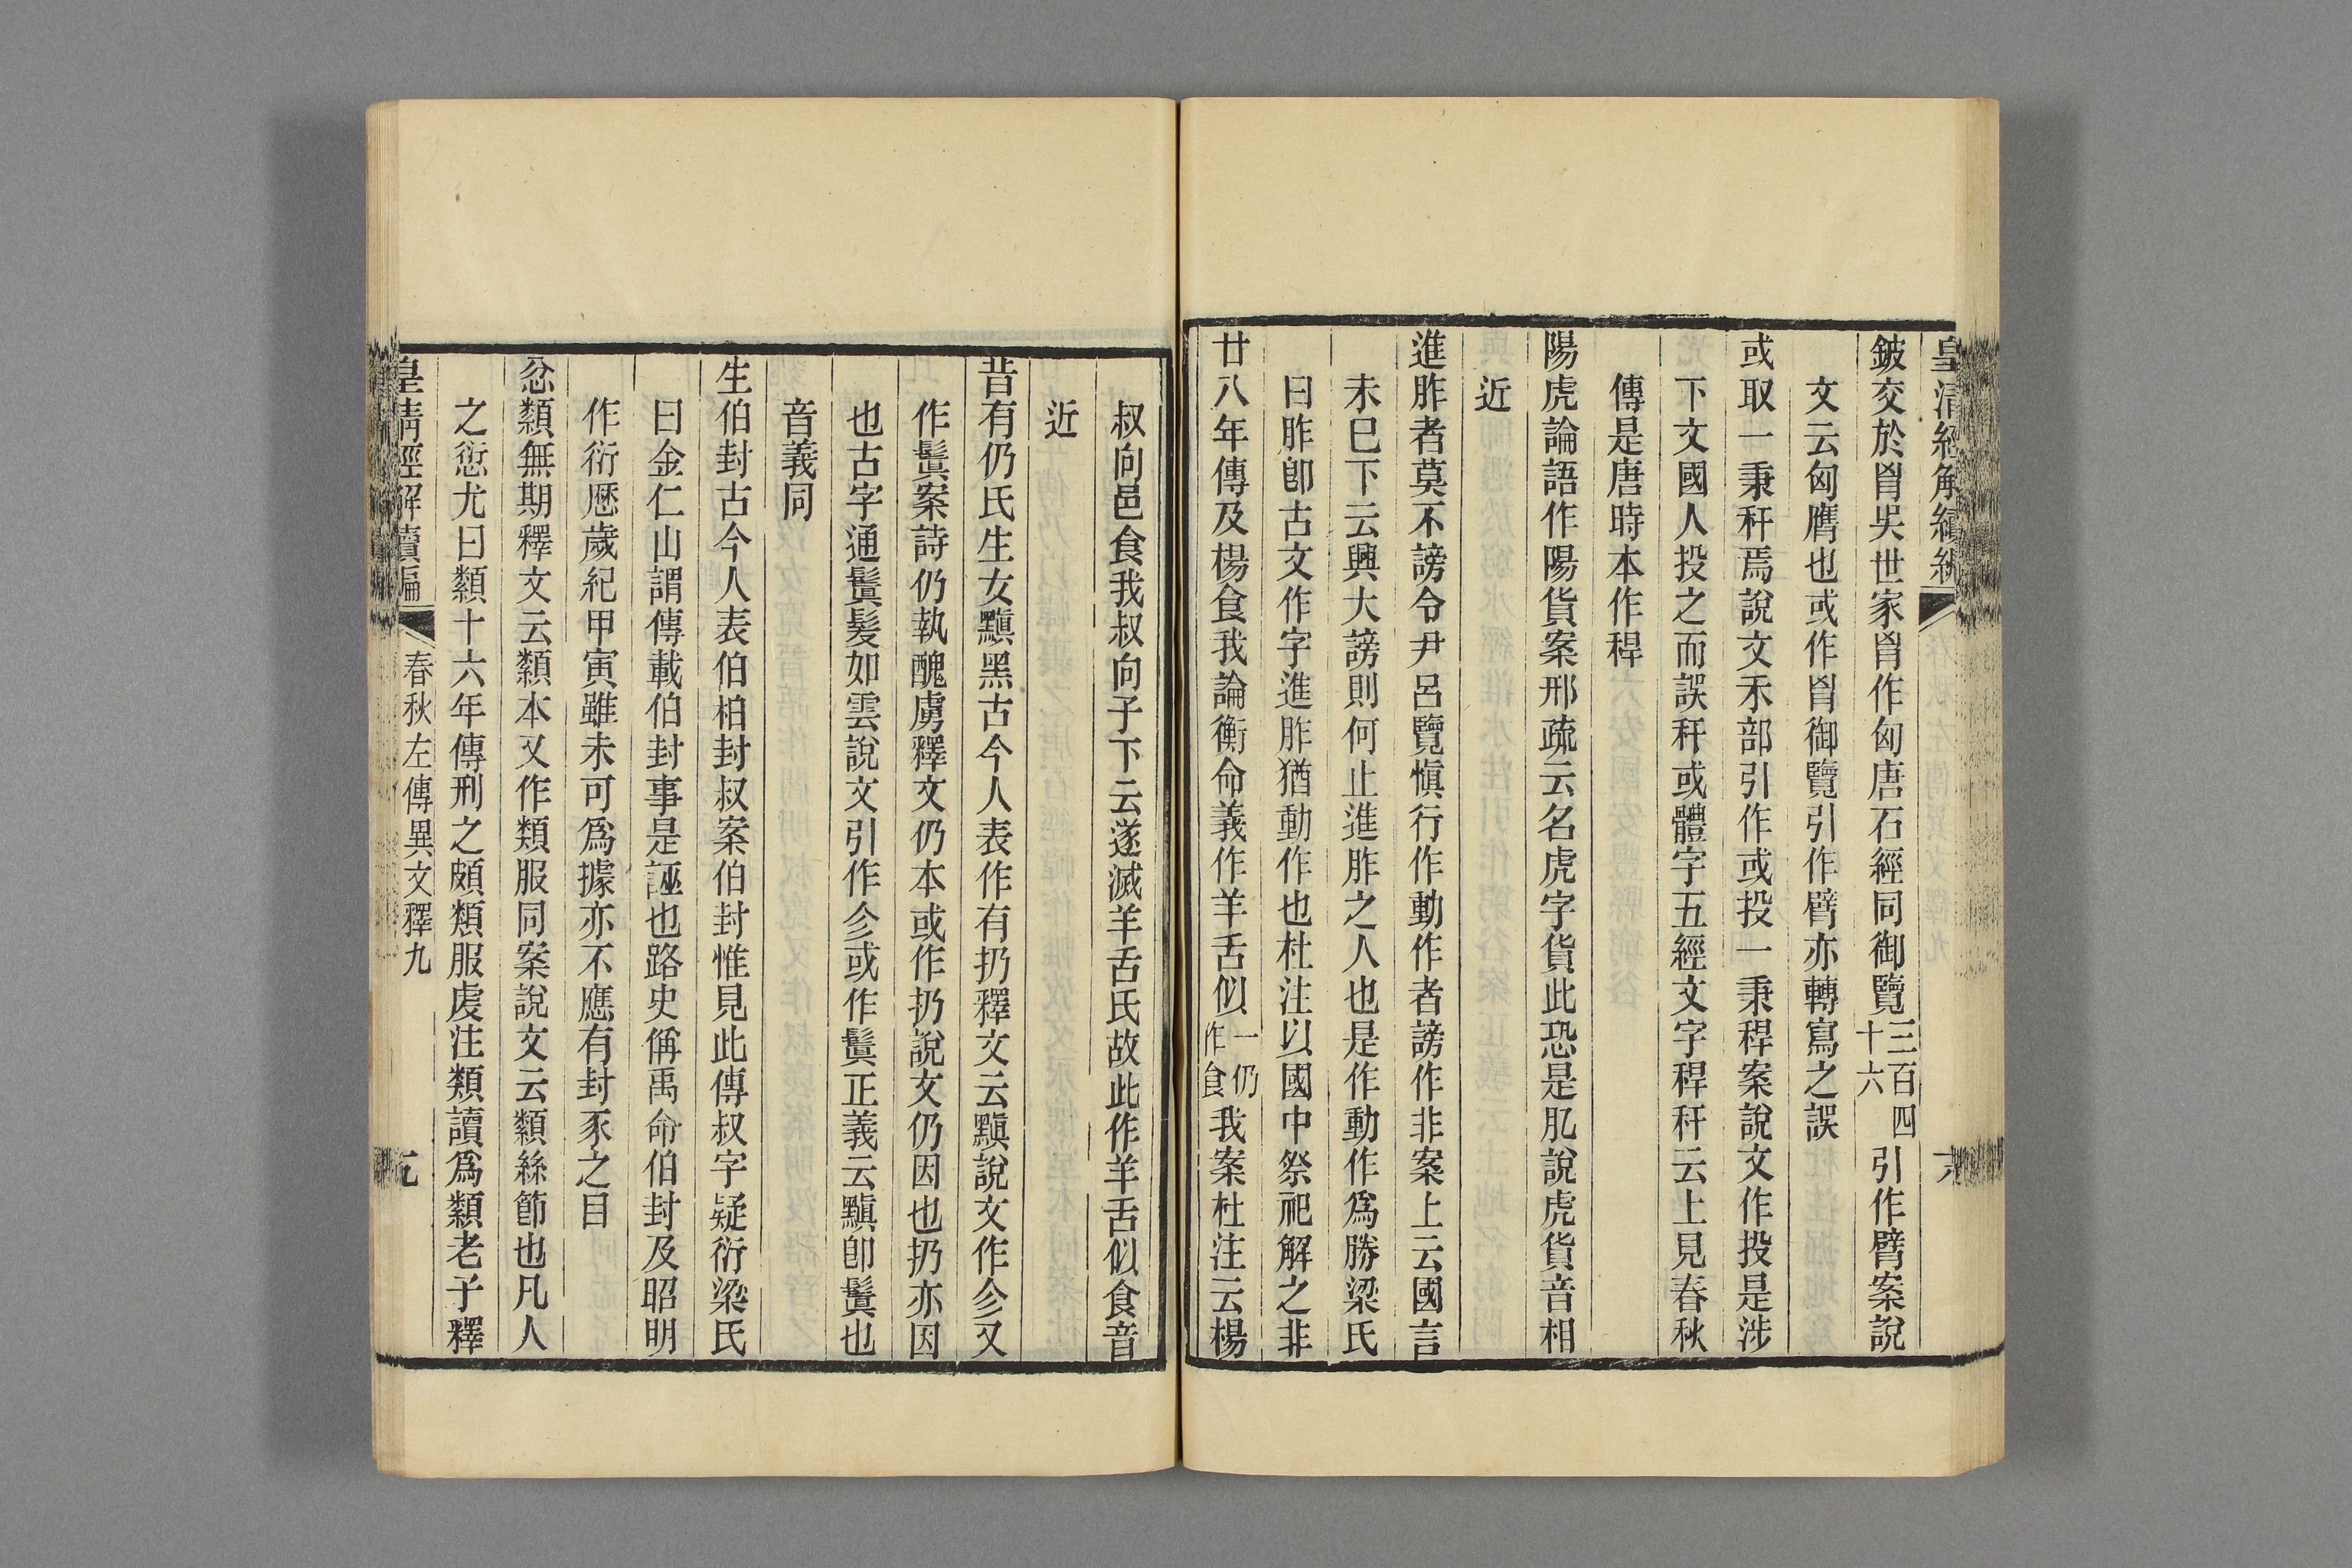 皇清經解續編
六
鈹交於胷吳世家胷作匈唐石經同御覽三百四十六引作臂案說
文云匈膺也或作胷御覽引作臂亦轉寫之誤
或取一秉秆焉說文禾部引作或投一秉稈案說文作投是涉
下文國人投之而誤秆或體字五經文字稈秆云上見春秋
傳是唐時本作稈
陽虎論語作陽貨案邢疏云名虎字貨此恐是肊說虎貨音相
近
進胙者莫不謗令尹呂覽愼行作動作者謗作非案上云國言
未已下云興大謗則何止進胙之人也是作動作爲勝梁氏
曰胙卽古文作字進胙猶動作也杜注以國中祭祀解之非
廿八年傳及楊食我論衡命義作羊舌似一仍作食我案杜注云楊
叔向邑食我叔向子下云遂滅羊舌氏故此作羊舌似食音
近
昔有仍氏生女黰黑古今人表作有扔釋文云黰說文作㐱又
作鬒案詩仍執醜虜釋文仍本或作扔說文仍因也扔亦因
也古字通鬒髮如雲說文引作㐱或作鬒正義云黰卽鬒也
音義同
生伯封古今人表伯柏封叔案伯封惟見此傳叔字疑衍梁氏
曰金仁山謂傳載伯封事是誣也路史偁禹命伯封及昭明
作衍厯歲紀甲寅雖未可爲據亦不應有封豕之目
忿纇無期釋文云纇本又作類服同案說文云纇絲節也凡人
之愆尤曰纇十六年傳刑之頗類服虔注類讀爲纇老子釋
皇清經解續編
春秋左傳異文釋九